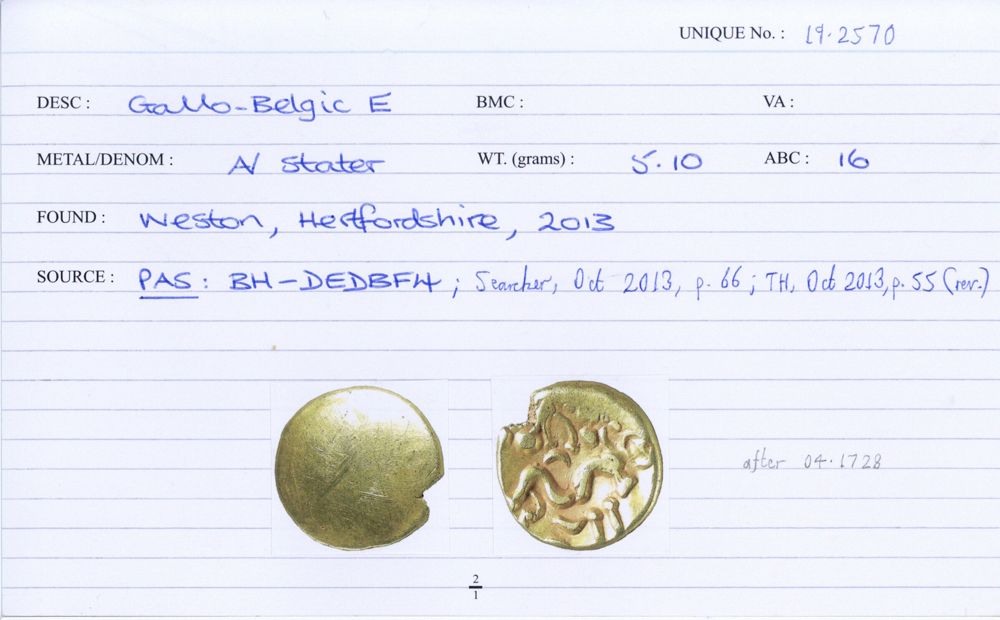 UNIQUE No. : 19.2570
DESC : Gallo-Belgic E BMC : VA :
METAL/DENOM : A/ Stater WT. (grams) : 5.10 ABC : 16
FOUND : Weston, Hertfordshire, 2013
SOURCE : PAS : BH-DEDBF4 ; Searcher, Oct 2013, p. 66 ; TH, Oct 2013, p. 55 (rev.)
after 04.1728
2
1